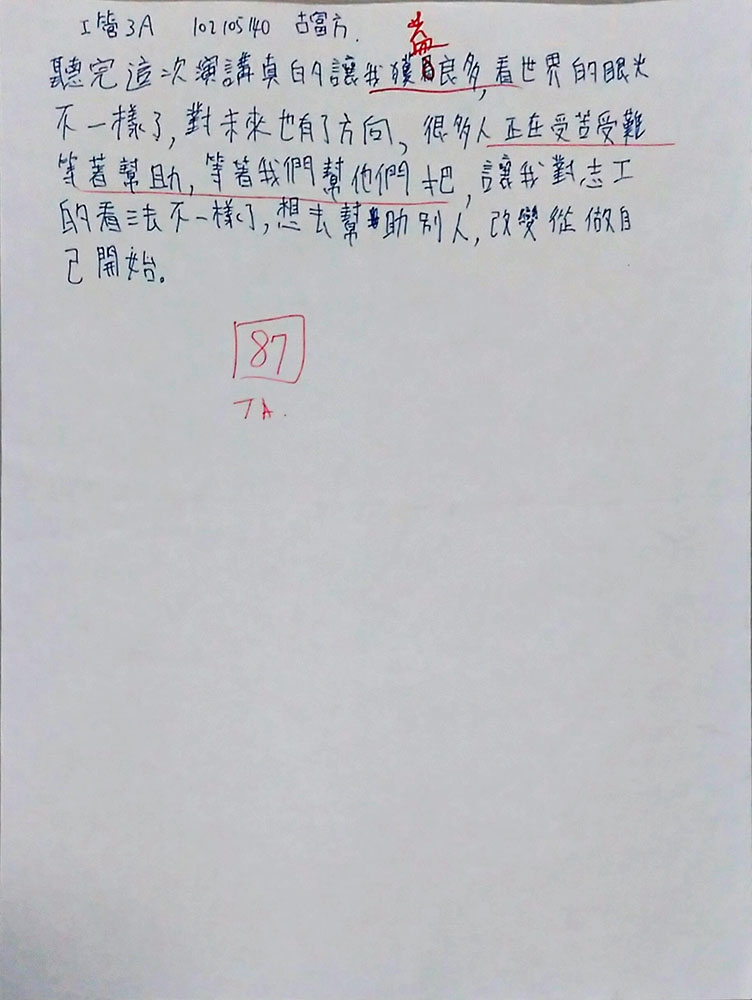 工管3A 102105140 古富方.
益
聽完這次演講真的讓我獲良多,看世界的眼光
不一樣了,對未來也有了方向、很多人正在受苦受難
等著幫助,等著我們幫他們把,讓我對志工
的看法不一樣了,想去幫助別人,改變從做自
己開始。
87
TA.